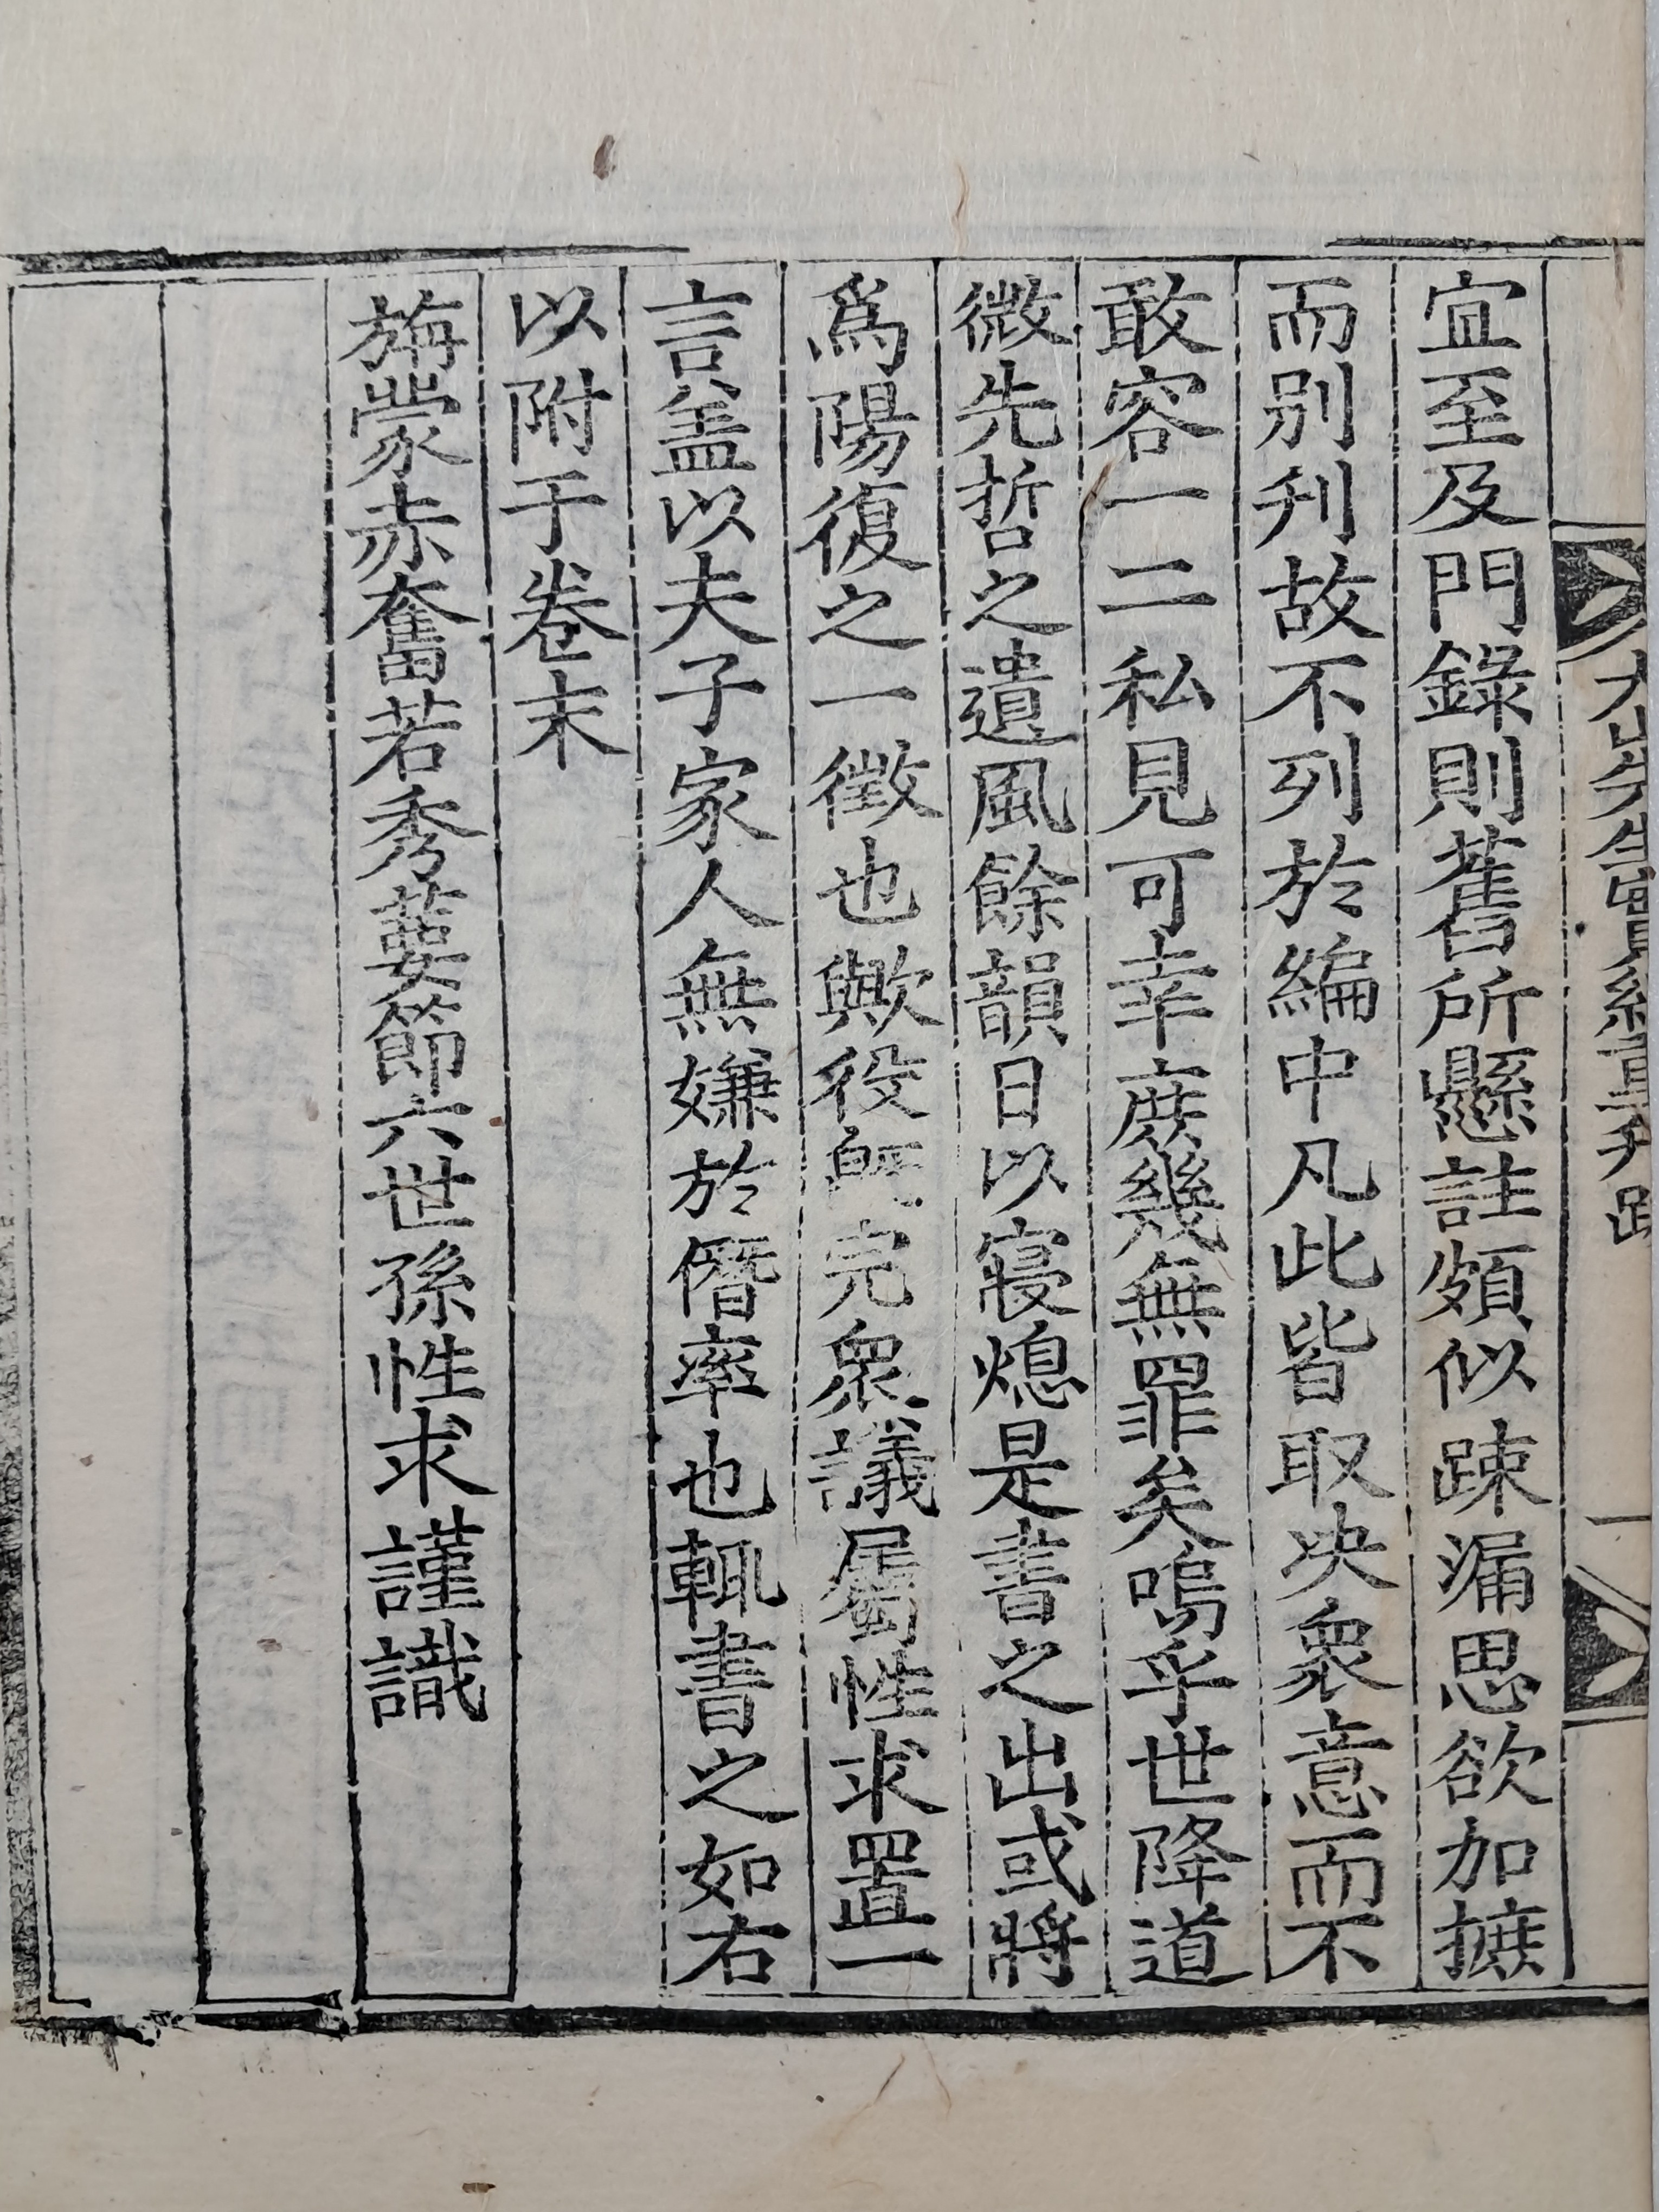 宜至及門錄則舊所懸註頗似踈漏思欲加摭
而別刋故不列於編中凡此皆取决衆意而不
敢容一二私見可幸庶幾無罪矣嗚乎世降道
微先哲之遺風餘韻日以寢熄是書之出或將
爲陽復之一徵也歟役旣完衆議屬性求置一
言盖以夫子家人無嫌於僭率也輒書之如右
以附于卷末
旃蒙赤奮若秀葽節六世孫性求謹識